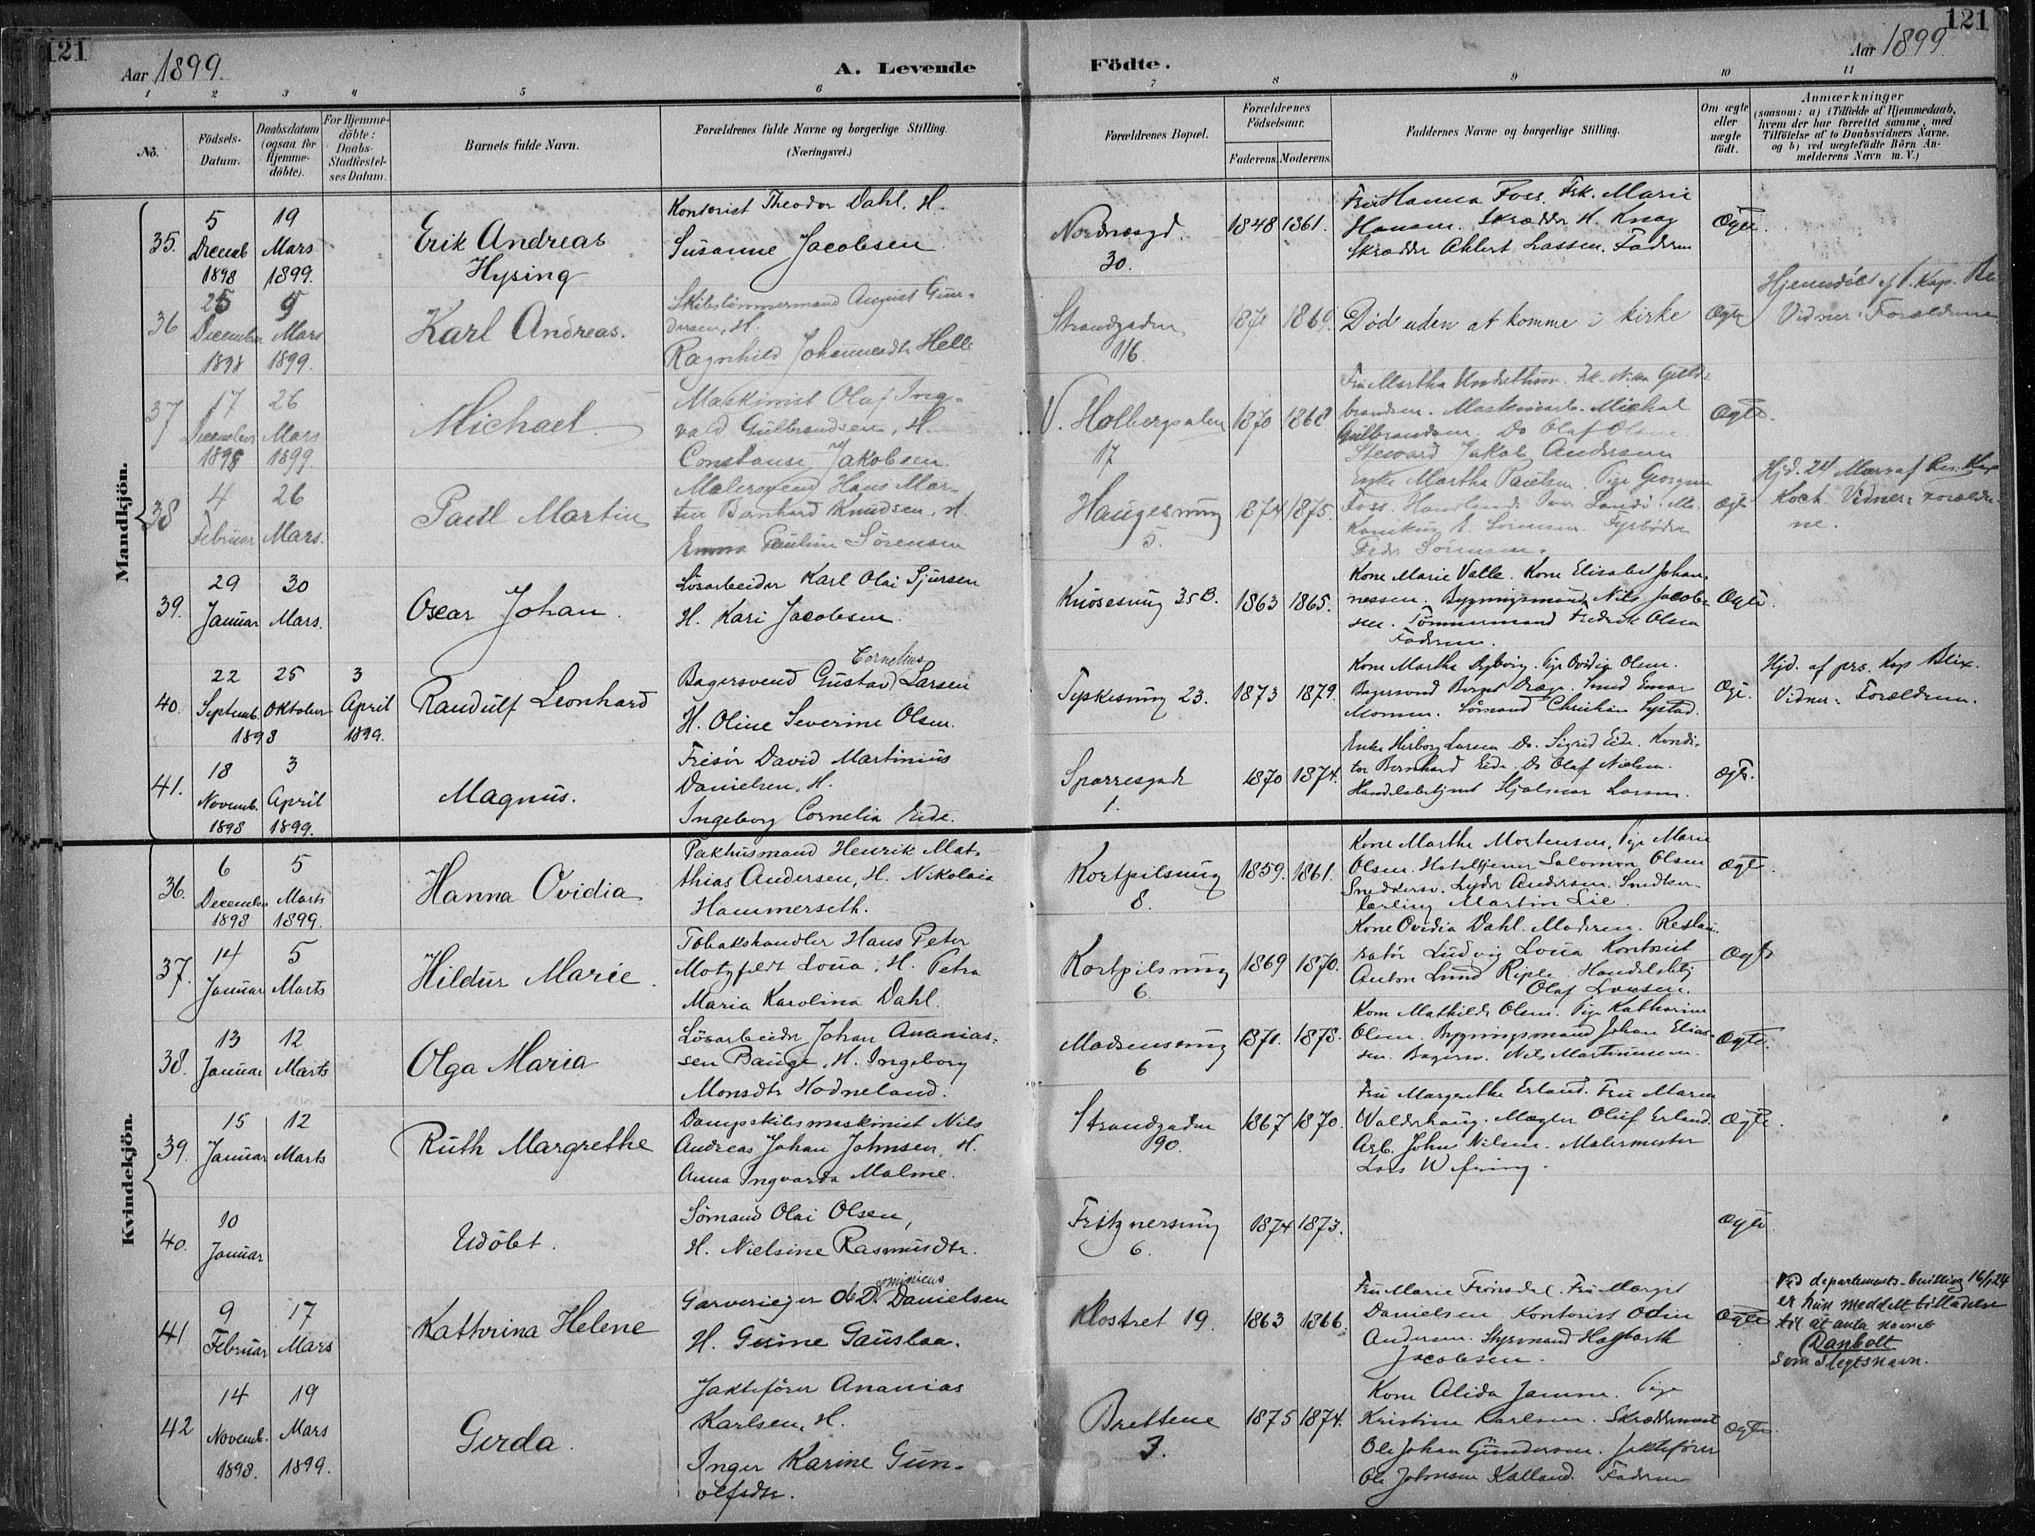 121
121
Aar 1899.
A. Levende
Födte.
Aar 1899
1 2 3 4 5 6 7 8 9 10 11
No.
Födsels-
Datum.
Daabsdatum
(ogsaa for
Hjemme-
döbte).
For Hjemme-
döbte:
Daabs-
Stadfæstel-
ses Datum.
Barnets fulde Navn.
Forældrenes fulde Navne og borgerlige Stilling.
(Næringsvei.)
Forældrenes Bopæl.
Forældrenes
Födselsaar.
Faderens. Moderens.
Faddernes Navne og borgerlige Stilling.
Om ægte
eller
uægte
født.
Anmærkninger
(saasom: a) i Tilfælde af Hjemmedaab,
hvem der har forrettet samme, med
Tilföielse af to Daabsvidners Navne,
og b) ved uægtefödte Börn An-
melderens Navn m. V.)
Mandkjön.
35.
5
Decemb
1898
19
Mars
1899.
Erik Andreas
Hysing
Kontorist Theodor Dahl, H.
Susanne Jacobsen.
Nordnæsgd.
30.
1848 1861.
Fru Hanna Foss. Frk. Marie
Hansen. Skrædder H. Knag
Skrædder Ahlert Lassen. Faderen
Ægte.
36
25
December
1898
9
Mars
1899.
Karl Andreas.
Skibstømmermand August Gun-
dersen, H.
Ragnhild Johannesdtr Helle
Strandgaden
116.
1871 1869.
Død uden at komme i kirke
Ægte
Hjemmedöbt af p. Kap. Bli
Vidner: Forældrene
37
17
December
1898
26
Mars
1899.
Michael.
Maskinist Olaf Ing-
vald Gulbrandsen, H.
Constanse Jakobsen.
V. Holbergsalm
17
1870 1868
brandsen. Maskinarb. Michal
Gulbrandsen. Do Olaf Olsen
Steward Jakob Andersen
Ægte.
38
4
Februar
26
Mars.
Paul Martin
Malersvend Hans Mar-
tin Bernhard Knudsen, H.
Emma Pauline Sørensen
Haugesmug
5.
1874 1875.
Enke Martha Paulsen. Pige
Foss.
Ægte
Hjd. 24 Mars af Res. Kap
Koch. Vidner: Forældre-
ne.
39.
29
Januar
30
Mars.
Oscar Johan.
Løsarbeider Karl Olai Sjursen
H. Kari Jacobsen.
Knøsesmug 35B.
1863 1865.
Kone Marie Valle. Kone Elisabet Johan-
nessen. Bygningsmand Nils Jacob-
sen. Tømmermand Fredrik Olsen
Faderen.
Ægte.
40.
22
Septemb.
1898
25
Oktober
3
April
1899.
Randulf Leonhard
Cornelius
Bagersvend Gustav Larsen
H. Oline Severine Olsen.
Tyskesmug 23.
1873 1879.
Kone Martha Dyborg. Pige Ovidia Olsen.
Momsen. Sømand Christian Systad.
Ægte.
Hjd. af prs. Kap Blix.
Vidner: Forældrene.
41.
18
Novemb.
1898
3
April
1899.
Magnus.
Frisör David Martinius
Danielsen, H.
Ingeborg Cornelia Eide.
Sparresgade
1.
1870 1874.
Enke Herborg Larsen. Do. Sigrid Eide. Kondi-
tor Bernhard Eide. Do Olaf Nielsen.
Handelsbetjent Hjalmar Larsen.
Ægte.
Kvindekjön.
36.
6
December
1898
5
Marts
1899.
Hanna Ovidia
Pakhusmand Henrik Mat-
thias Andersen, H. Nikolaia
Hammerseth.
Kortpilsmug
8.
1859. 1861.
Kone Marthe Mortensen, Pige Marie
Olsen. Hoteltjener Salomon Olsen
Smeddersv. Lyder Andersen. Snedker-
lærling Martin Lie.
Ægte.
37.
14
Januar
5
Marts
Hildur Marie.
Tobakshandler Hans Peter
Motzfeldt Loua, H. Petra
Maria Karolina Dahl.
Kortpilsmug
6.
1869 1870.
Kone Ovidia Dahl. Moderen. Restau-
ratör Ludvig Loua Kontorist
Anton Lund Riple. Handelsbtj
Olaf Lousen.
Ægte
38.
13
Januar
12
Marts
Olga Maria
Løsarbeider Johan Ananias-
sen Bauge, H. Ingeborg
Monsdtr Hodneland.
Madsensmug
6
1871. 1878.
Kone Mathilde Olsen. Pige Katharine
Olsen. Bygningsmand Johan Elias-
sen. Bagersv. Nils Martinussen.
Ægte.
39.
15
Januar
12
Marts
Ruth Margrethe
Dampskibsmaskinist Nils
Andreas Johan Johnsen, H.
Anna Ingvarda Malme.
Strandgaden
90.
1867 1870.
Fru Margrethe Erland. Fru Maren
Walderhaug. Mægler Oluf Erland.
Arb. John Nilsen. Malermester
Lars Wefring.
Ægte.
40.
10
Januar
Udöbt.
Sömand Olai Olsen,
H. Nielsine Rasmusdtr.
Fritznersmug
6.
1874 1873.
Ægte.
41
9
Februar
17
Mars
Kathrina Helene
ominicus
Garverieier Ole D. Danielsen
H. Gurine Gausbaa.
Klostret 19.
1863 1866.
Fru Marie Fronsdal. Fru Margit
Danielsen Kontorist Odin
Andersen. Styrmand Hagbarth
Jacobsen.
Ægte
Ved departements-bevilling 16/1 24
er hun meddelt tilladelse
til at anta navnet
Danbolt
som slegtsnavn.
42
14
Novemb.
1898.
19
Mars
1899.
Gerda.
Jaktefører Ananias
Karlsen, H.
Inger Karine Gun-
olfsdtr.
Brettene
3.
1875 1874.
Kone Alida Jansen. Pige
Kristine Karlsen. Skræddermest
Ole Johan Gundersen. Jaktefører
Ole Johnsen Kalland. Faderen
Ægte.